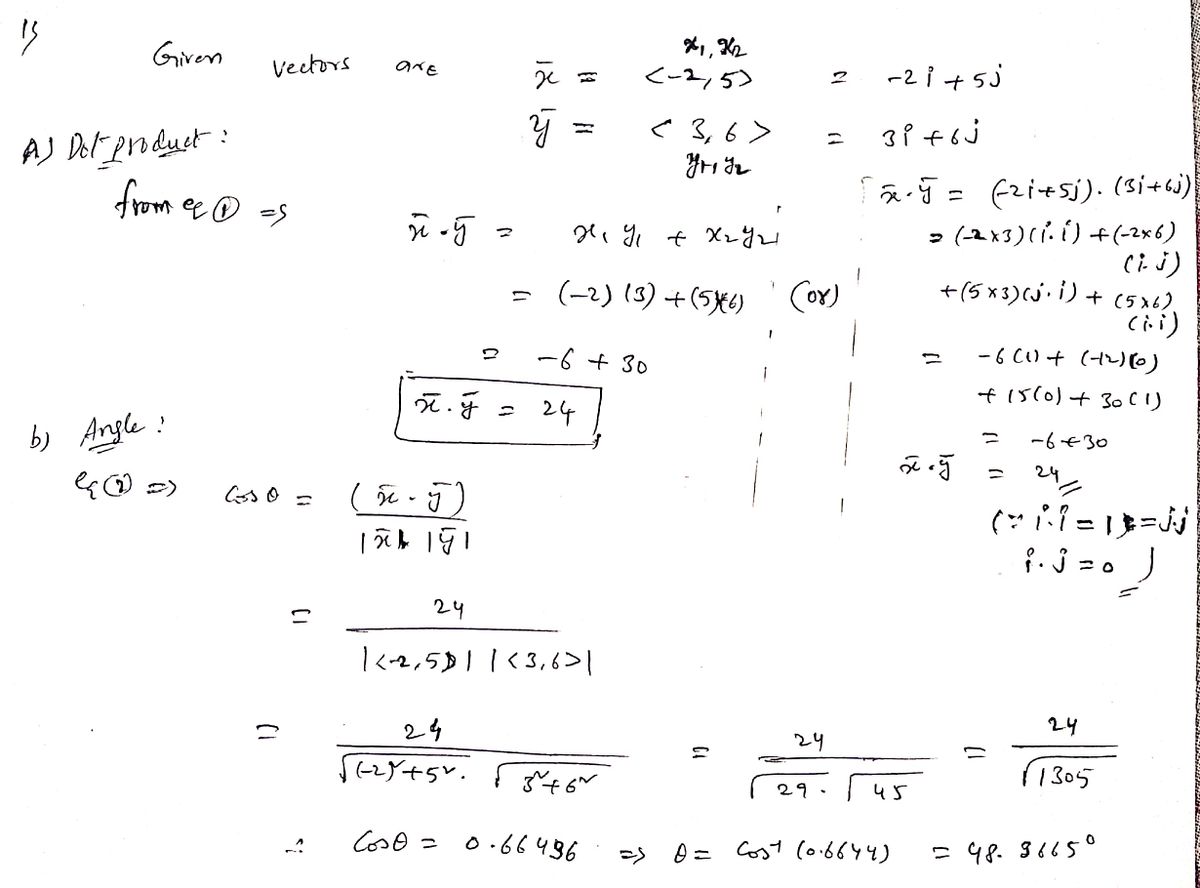 1)
Given vectors are x̄ = <-2, 5> = -2i + 5j
x₁, x₂
ȳ = < 3, 6 > = 3i + 6j
y₁, y₂
A) Dot product :
from eq ① =>
x̄ . ȳ = x₁ y₁ + x₂ y₂
= (-2) (3) + (5)(6)
= -6 + 30
x̄ . ȳ = 24
(or)
x̄ . ȳ = (-2i+5j) . (3i+6j)
= (-2x3)(i.i) + (-2x6)
(i.j)
+(5x3)(j.i) + (5x6)
(j.j)
= -6(1) + (-12)(0)
+ 15(0) + 30(1)
= -6+30
x̄ . ȳ = 24
(∵ i.i = 1 = j.j
i.j = 0 )
b) Angle :
eq ② => Cos θ = (x̄ . ȳ) / |x̄| |ȳ|
= 24 / |<-2,5>| |<3,6>|
= 24 / √(-2)²+5² . √3²+6² = 24 / √29 . √45 = 24 / √1305
∴ Cosθ = 0.66436 => θ = Cos⁻¹ (0.6644) = 48.3665°